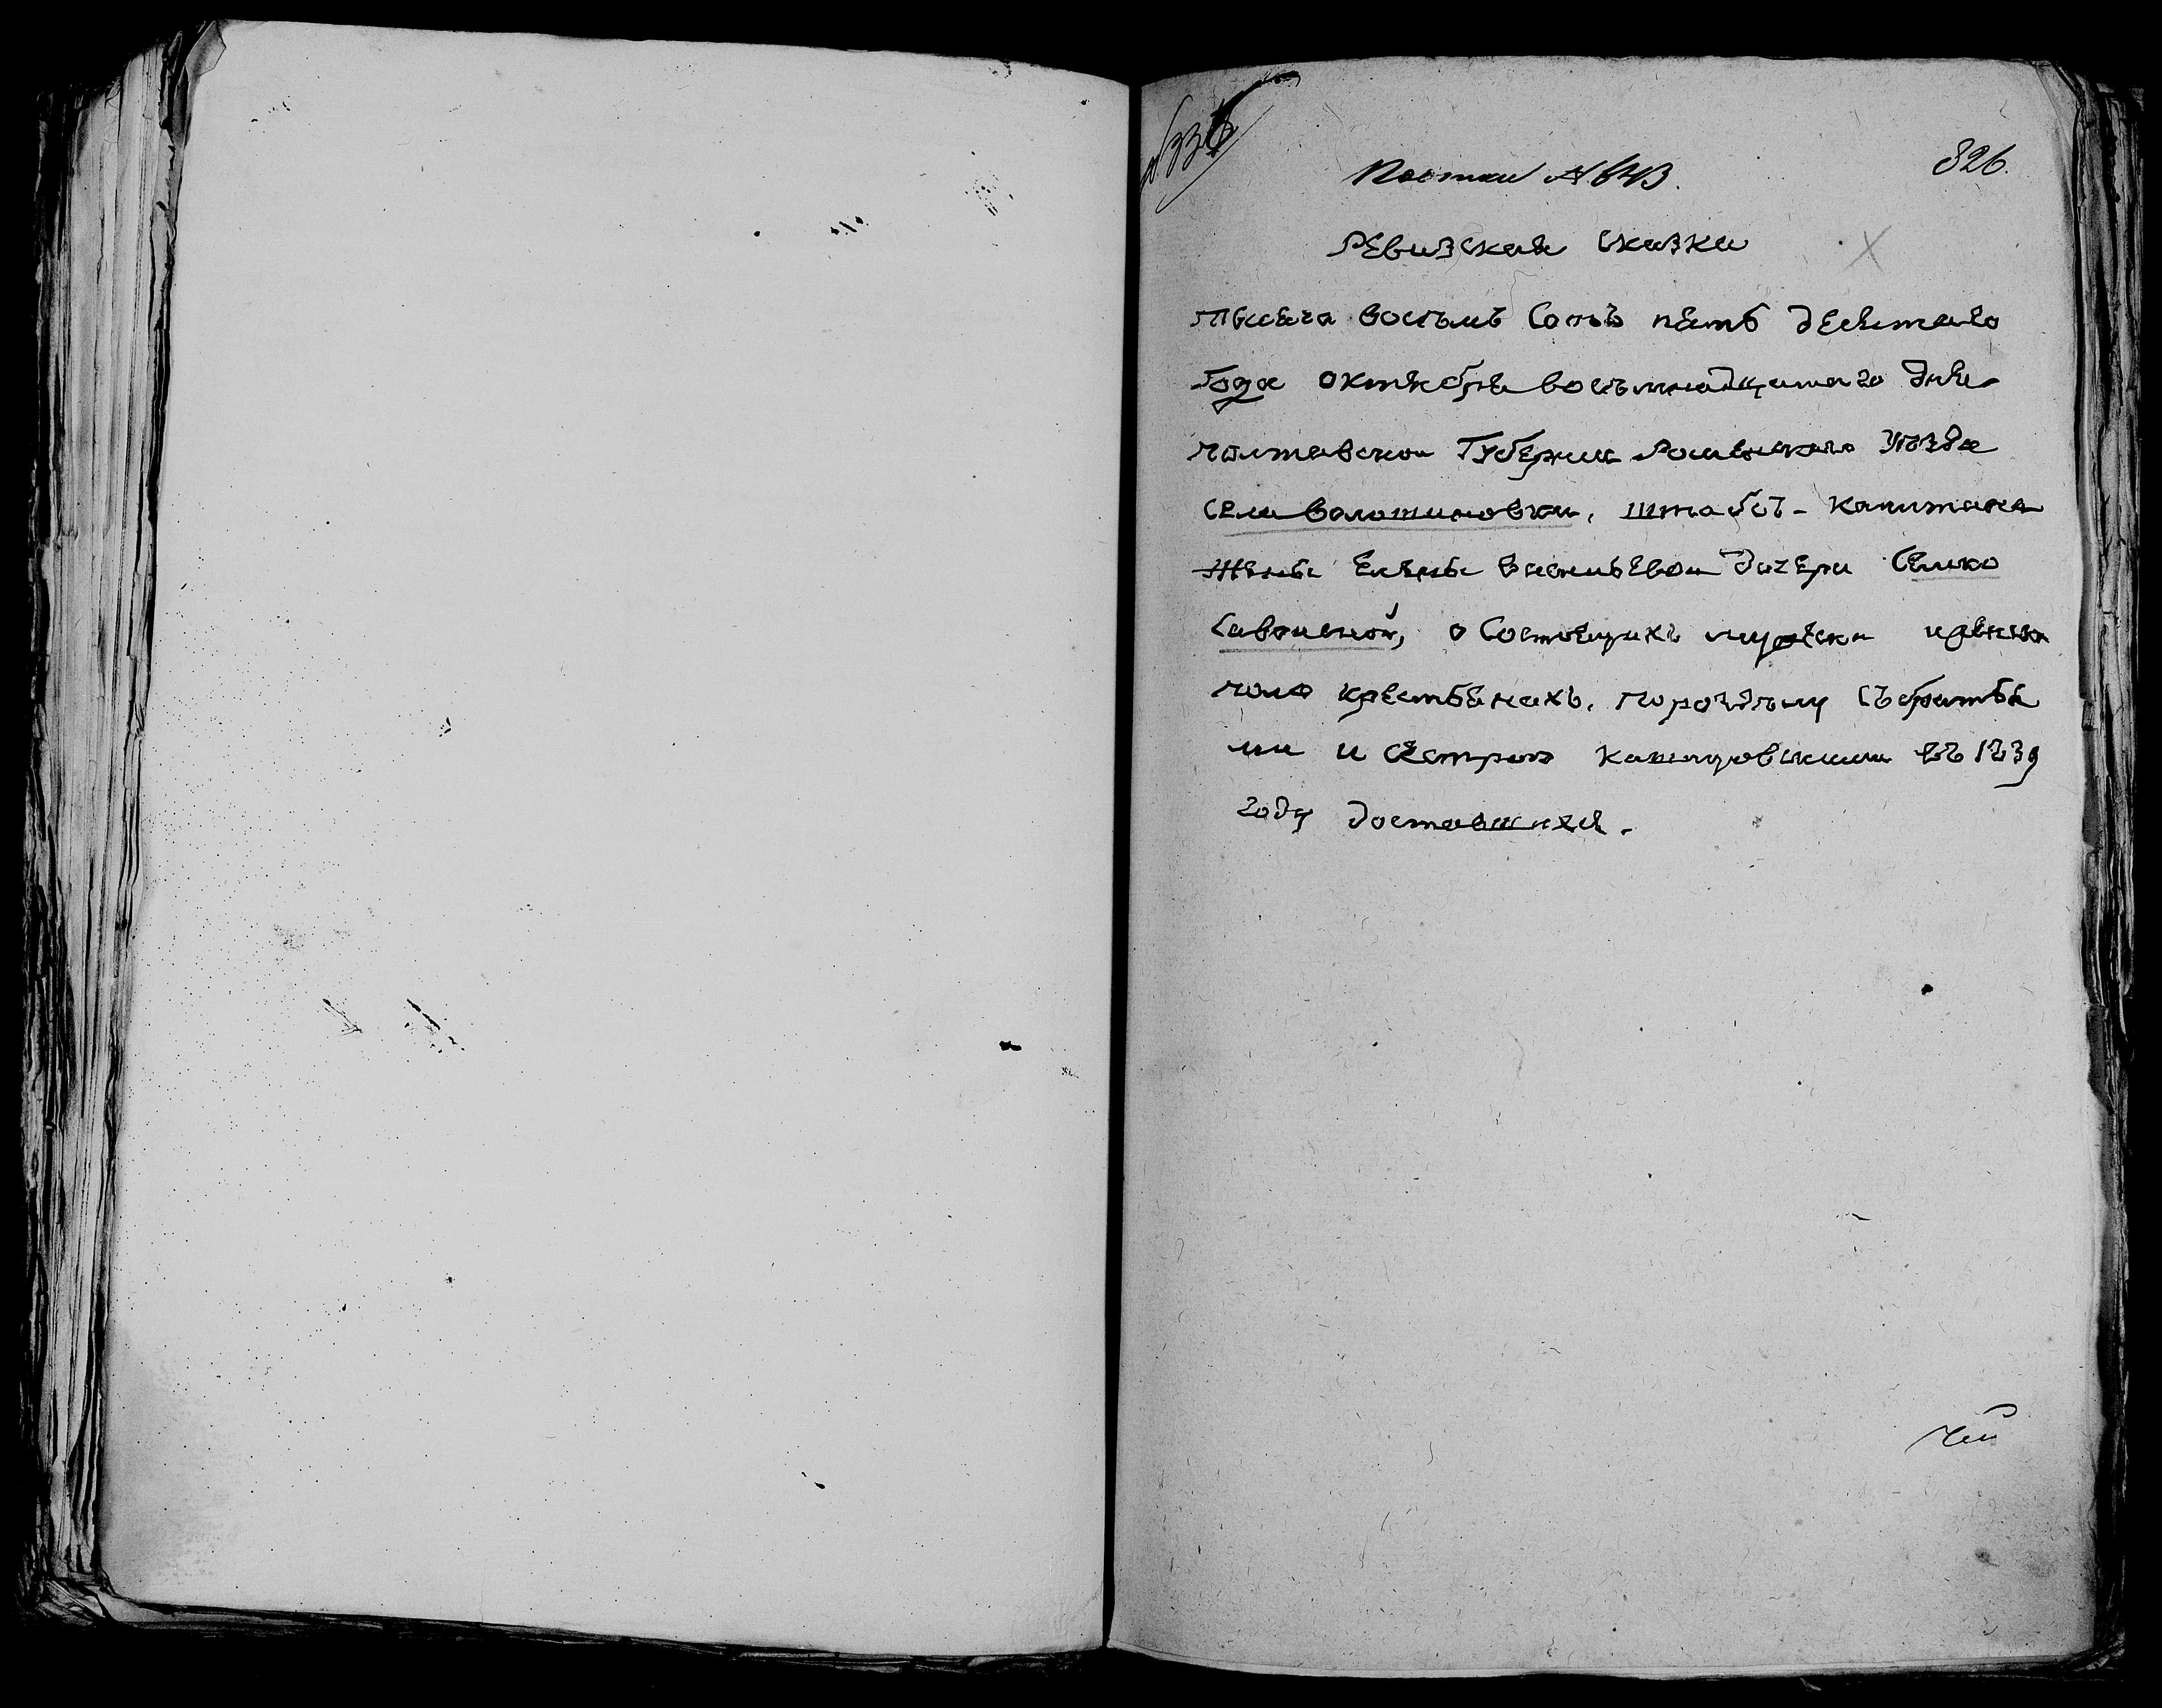 826.
№ 643.
Ревизская сказка
Тысяча восъмъ Сотъ пять десятаго
Года октября восъмнадцатаго дня
полтавской Губернии Роменскаго Уезда
села волошиновки, штабсъ-капитана
Жены Елены васильевой дочери Селико
Савриской, о Состоящихъ мужеска
пола крестьянахъ, по розделу съ братья
ми и сестрою въ 1839
году доставшихся.